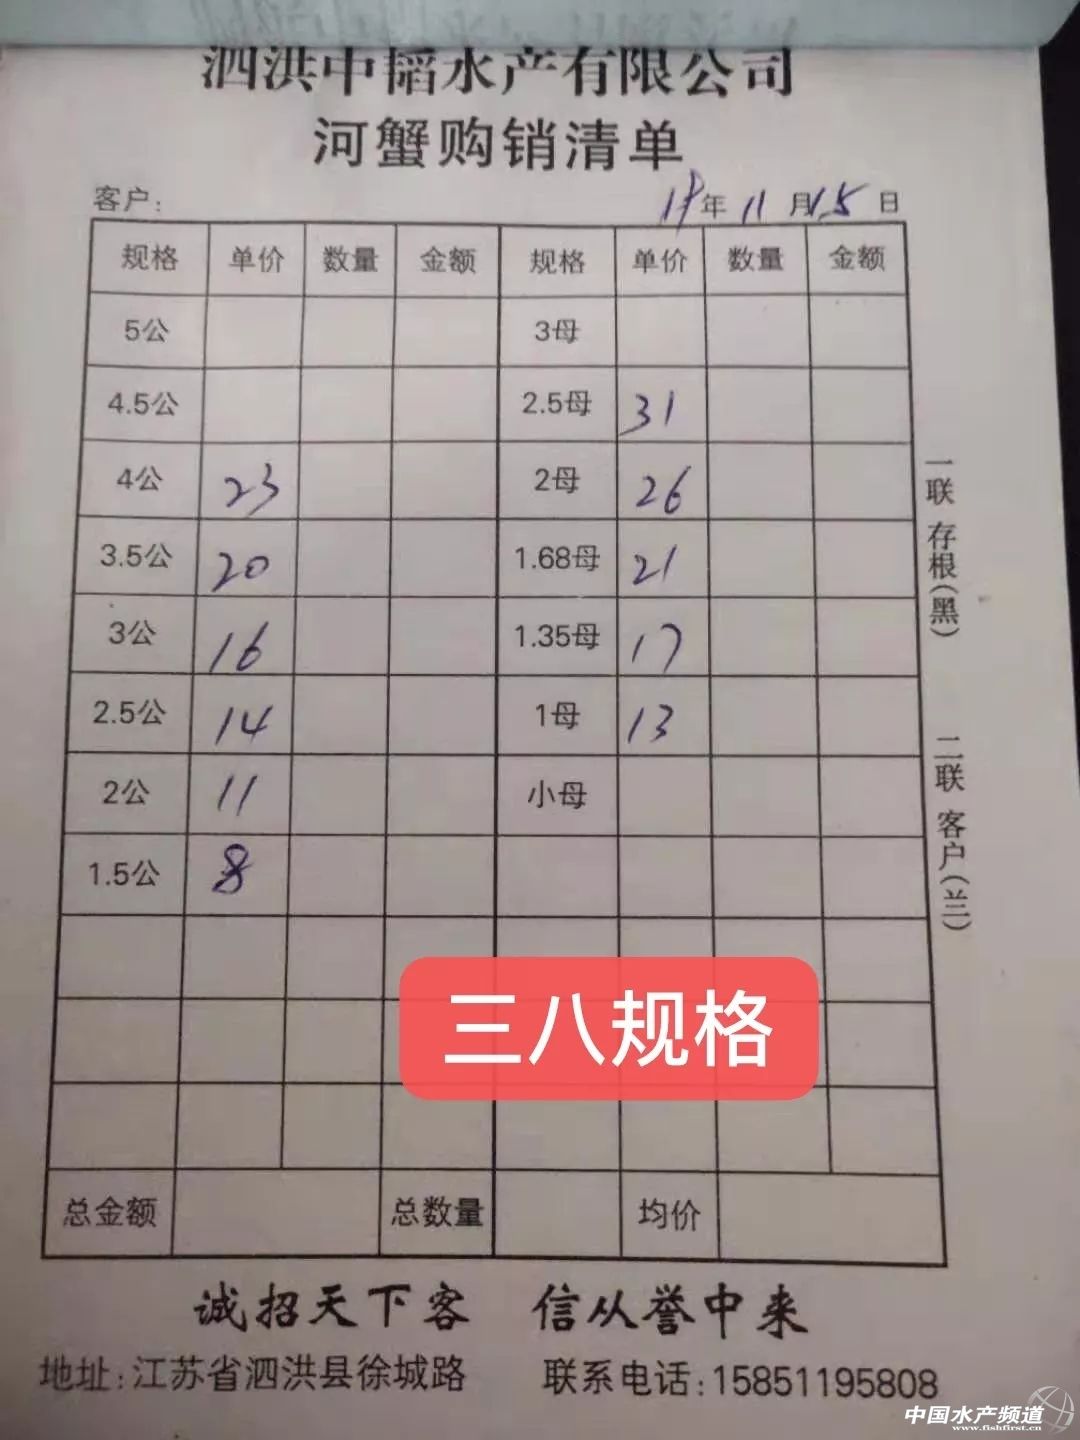 泗洪中韬水产有限公司
河蟹购销清单
客户: 年 11 月 15 日
规格 单价 数量 金额 规格 单价 数量 金额
5公 3母
4.5公 2.5母 31
4公 23 2母 26
3.5公 20 1.68母 21
3公 16 1.35母 17
2.5公 14 1母 13
2公 11 小母
1.5公 8
三八规格
总金额 总数量 均价
一联 存根(黑)
二联 客户(兰)
诚招天下客 信从誉中来
地址:江苏省泗洪县徐城路 联系电话:15851195808
中国水产频道
www.fishfirst.cn